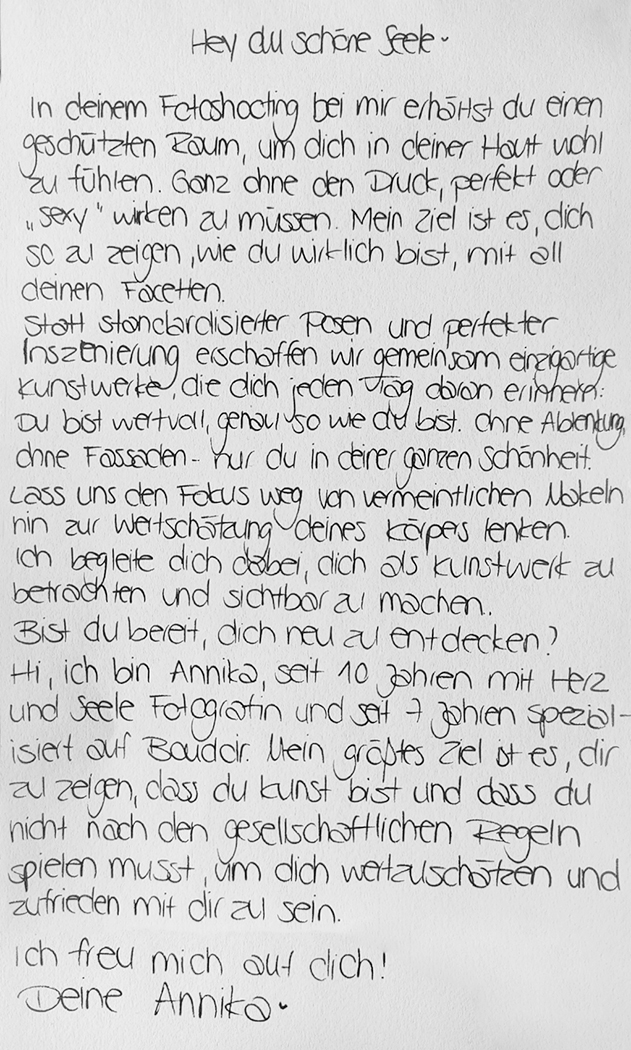 Hey du schöne Seele.
In deinem Fotoshooting bei mir erhältst du einen
geschützten Raum, um dich in deiner Haut wohl
zu fühlen. Ganz ohne den Druck, perfekt oder
„sexy" wirken zu müssen. Mein Ziel ist es, dich
so zu zeigen, wie du wirklich bist, mit all
deinen Facetten.
Statt standardisierter Posen und perfekter
Inszenierung erschaffen wir gemeinsam einzigartige
Kunstwerke, die dich jeden Tag daran erinnern:
Du bist wertvoll, genau so wie du bist. Ohne Ablenkung,
ohne Fassaden - nur du in deiner ganzen Schönheit.
Lass uns den Fokus weg von vermeintlichen Makeln
hin zur Wertschätzung deines Körpes lenken.
Ich begleite dich dabei, dich als Kunstwerk zu
betrachten und sichtbar zu machen.
Bist du bereit, dich neu zu entdecken?
Hi, ich bin Annika, seit 10 Jahren mit Herz
und Seele Fotografin und seit 7 Jahren spezial-
isiert auf Boudoir. Mein größtes Ziel ist es, dir
zu zeigen, dass du Kunst bist und dass du
nicht nach den gesellschaftlichen Regeln
spielen musst, um dich wertzuschätzen und
zufrieden mit dir zu sein.
Ich freu mich auf dich!
Deine Annika.